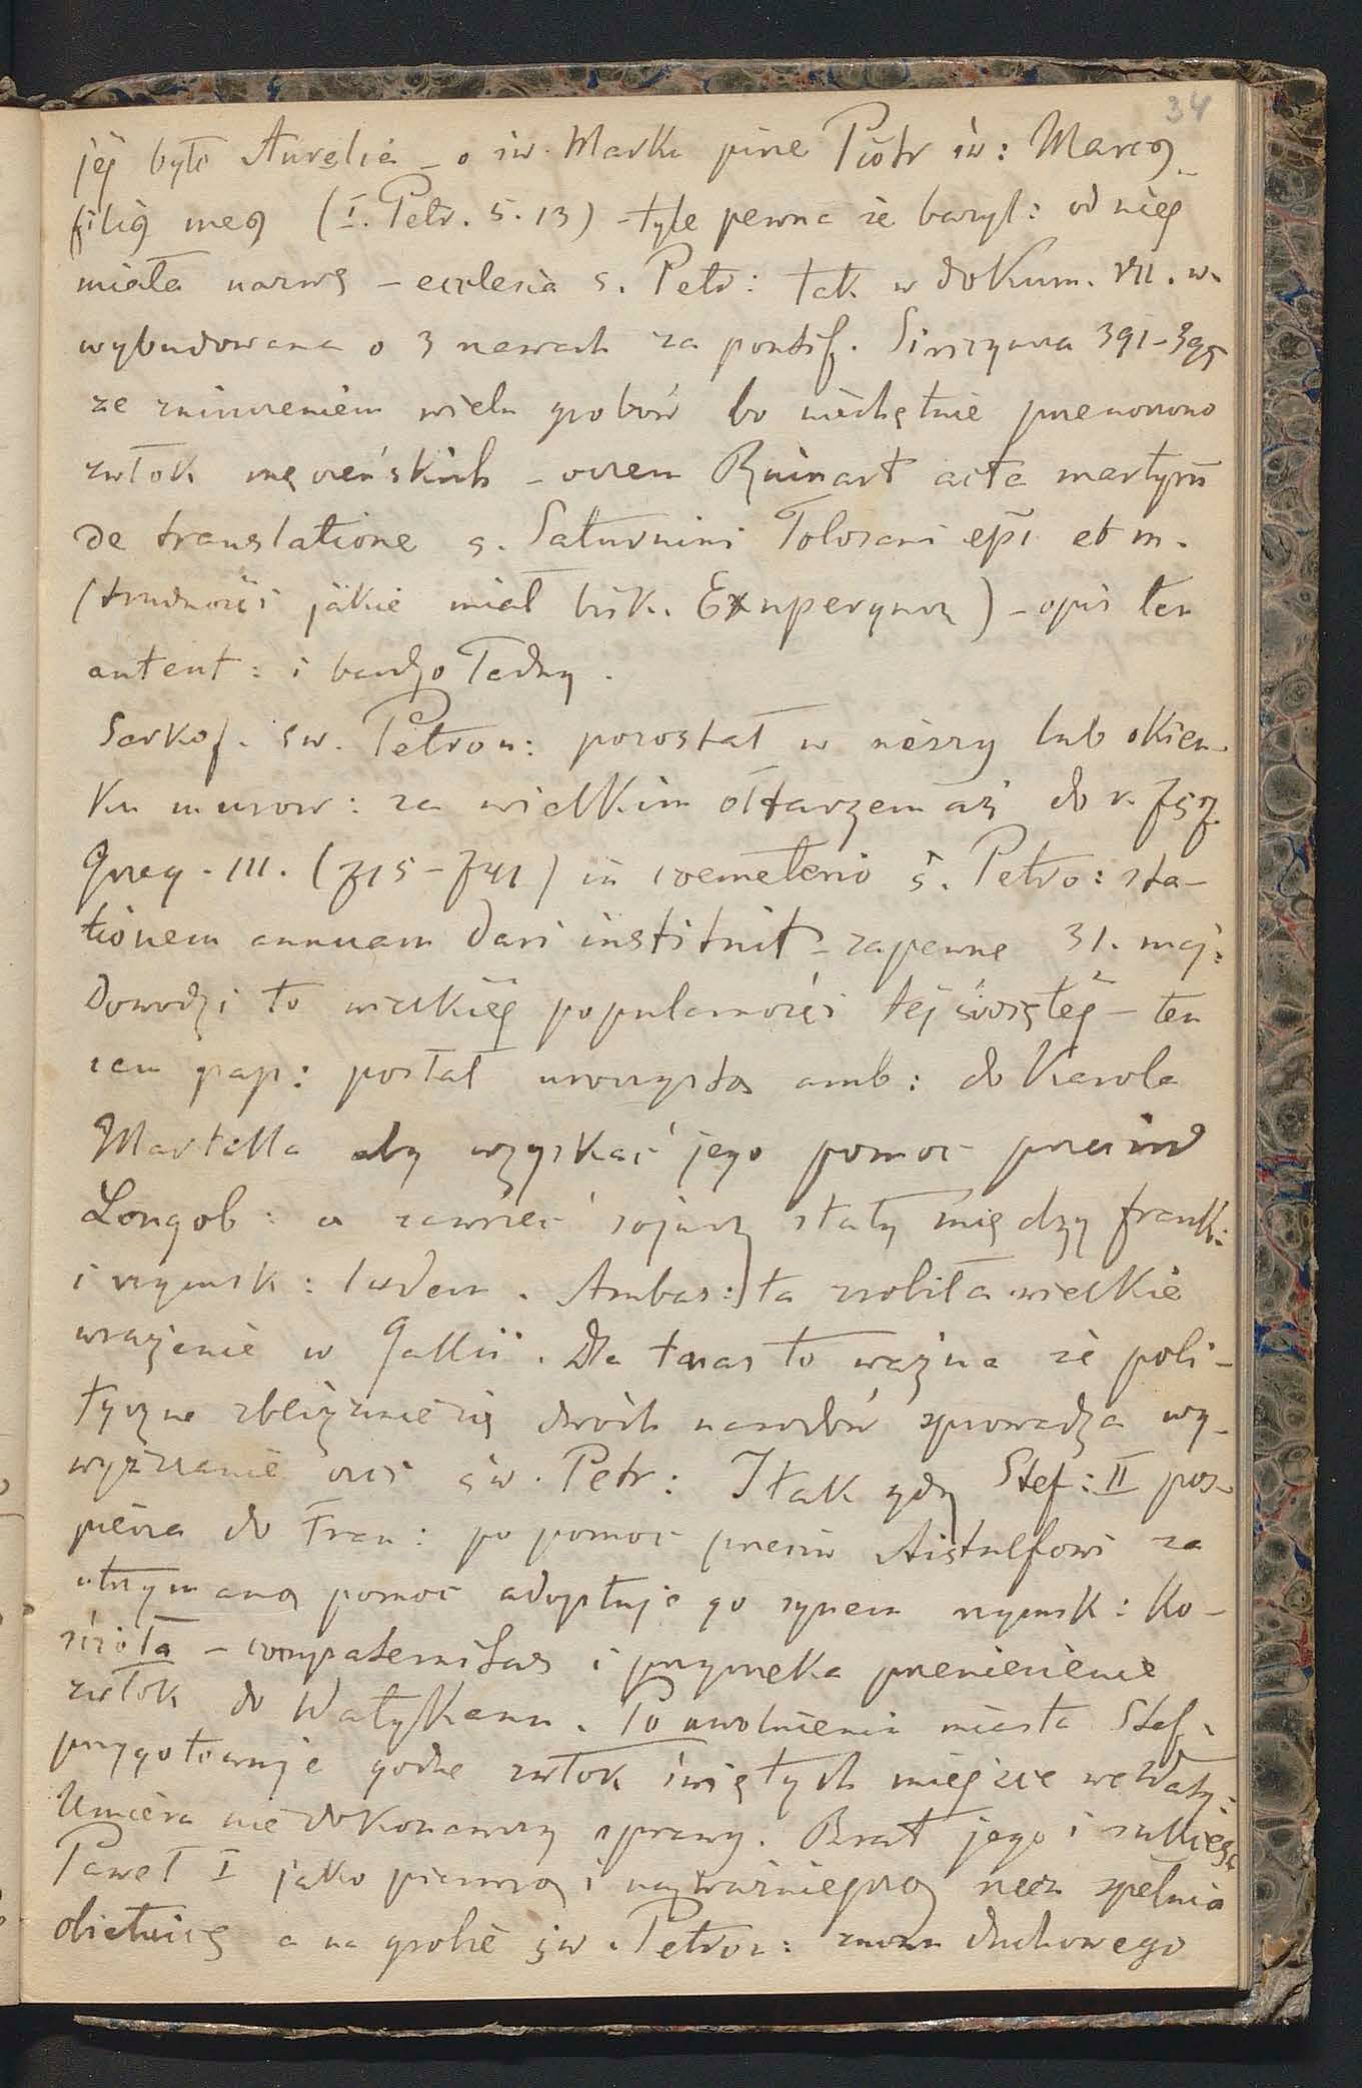 34
jej było Aurelia – o św. Marku pisze Piotr św: Marcꝯ
filiꝯ meꝯ (I. Petr. 5. 13) – tyle pewna że bazyl: od niej
miała nazwę – ecclesia s. Petr: tak w dokum. VII. w.
wybudowana o 3 nawach za pontif. Siriczyusza 391–395
ze zniszczeniem wielu grobów bo niechętnie przenoszono
zwłok męczeńskich – Ruinart acta martyrū
de translatione s. Saturnini Tolosani epī et m.
(trudności jakie miał bisk. Exuperyusz) – opis ten
autent: i bardzo ładny.
Sarkof. św. Petron: pozostał w niszy lub okien-
ku murow: za wielkim ołtarzem aż do r. 757.
Grzeg. III. (715–741) in coemeterio s. Petro: sta-
tionem annuam dari instituit – zapewne 31. maj:
Dowodzi to wielkiej popularności tej świętej – ten
sam pap: posłał uroczystą amb: do Karola
Martella aby uzyskać jego pomoc przeciw
Longob: a zawrzeć sojusz stały między frank:
i rzymsk: ludem. Ambas: ta zrobiła wielkie
wrażenie w Gallii. Dla nas to ważne że poli-
tyczne zbliżenie się dwóch narodów sprowadza wy-
wyższenie czci św. Petr: I tak gdy Stef: II pos-
piesza do Fran: po pomoc przeciw Aistulfowi za
otrzymaną pomoc adoptuje go synem rzymsk: Ko-
ścioła – compaternitas i przyrzeka przeniesienie
zwłok do Watykanu. Po uwolnieniu miasta Stef.
przygotowuje godne zwłok świętych miejsce we Waty:
Umiera nie dokonawszy sprawy. Brat jego i sukces:
Paweł I jako pierwszą i najważniejszą rzecz spełnia
obietnicę a na grobie św. Petron: znowu duchowego